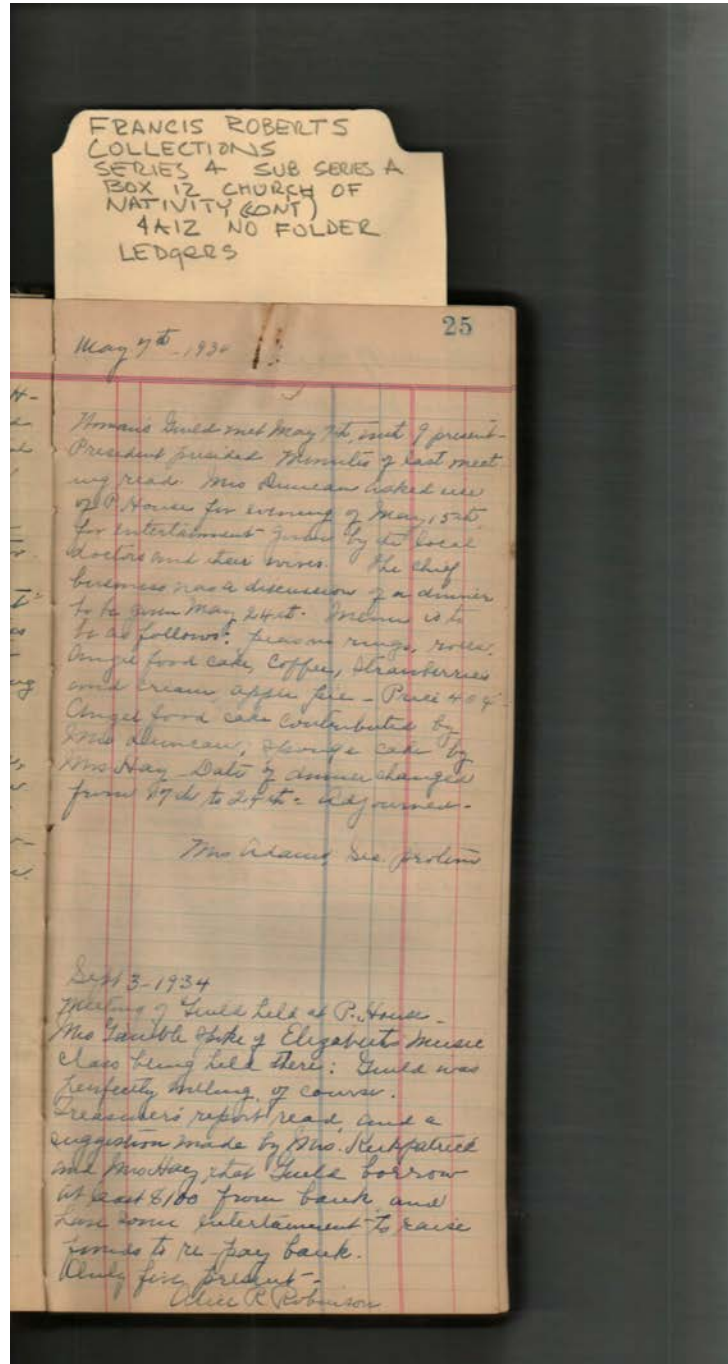 FRANCIS ROBERTS
COLLECTIONS
SERIES 4 SUB SERIES A
BOX 12 CHURCH OF
NATIVITY (CONT)
4A12 NO FOLDER
LEDGERS
25
May 7th 1934
Woman's Guild met May 7th, with 9 present-
President presided. Minutes of last meet-
ing read. Mrs Duncan asked use
of P. House for evening of May 15th,
for entertainment given by the local
doctors and their wives. The chief
business was a discussion of a dinner
to be given May 24th. Menu is to
be as follows: rings, rolls,
Angel food cake, Coffee, Strawberries
and cream, apple pie - Price 40¢
Angel food cake contributed by
Mrs Duncan, sponge cake by
Mrs Hay - Date of dinner changed
from 17th to 24th = Adjourned -
Mrs Adams, Sec. protem
Sept 3 - 1934
Meeting of Guild held at P. House -
Mrs Gamble spoke of Elizabeth's music
class being held there: Guild was
perfectly willing, of course.
Treasurer's report read, and a
suggestion made by Mrs. Kirkpatrick
and Mrs Hay that Guild borrow
at least $100 from bank and
have some entertainment to raise
funds to re-pay bank.
Only five present -
Alice R. Robinson